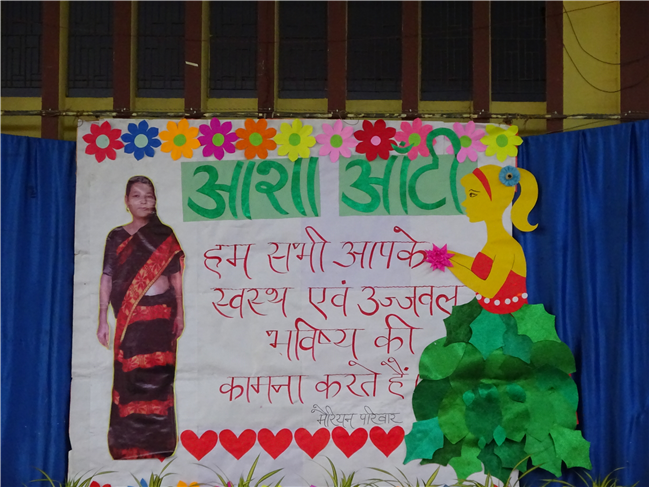 आशा आँटी
हम सभी आपके
स्वस्थ एवं उज्जवल
भविष्य की
कामना करते हैं
मैरियन परिवार